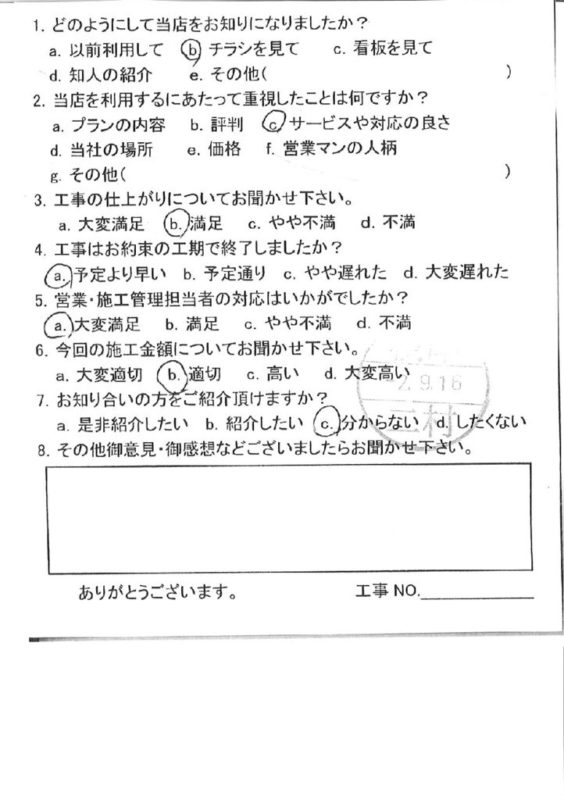 1. どのようにして当店をお知りになりましたか？
a. 以前利用して b. チラシを見て c. 看板を見て
d. 知人の紹介 e. その他( )
2. 当店を利用するにあたって重視したことは何ですか？
a. プランの内容 b. 評判 c. サービスや対応の良さ
d. 当社の場所 e. 価格 f. 営業マンの人柄
g. その他( )
3. 工事の仕上がりについてお聞かせ下さい。
a. 大変満足 b. 満足 c. やや不満 d. 不満
4. 工事はお約束の工期で終了しましたか？
a. 予定より早い b. 予定通り c. やや遅れた d. 大変遅れた
5. 営業・施工管理担当者の対応はいかがでしたか？
a. 大変満足 b. 満足 c. やや不満 d. 不満
6. 今回の施工金額についてお聞かせ下さい。
a. 大変適切 b. 適切 c. 高い d. 大変高い
2.9.16
7. お知り合いの方をご紹介頂けますか？
a. 是非紹介したい b. 紹介したい c. 分からない d. したくない
8. その他御意見・御感想などございましたらお聞かせ下さい。
ありがとうございます。 工事 NO.